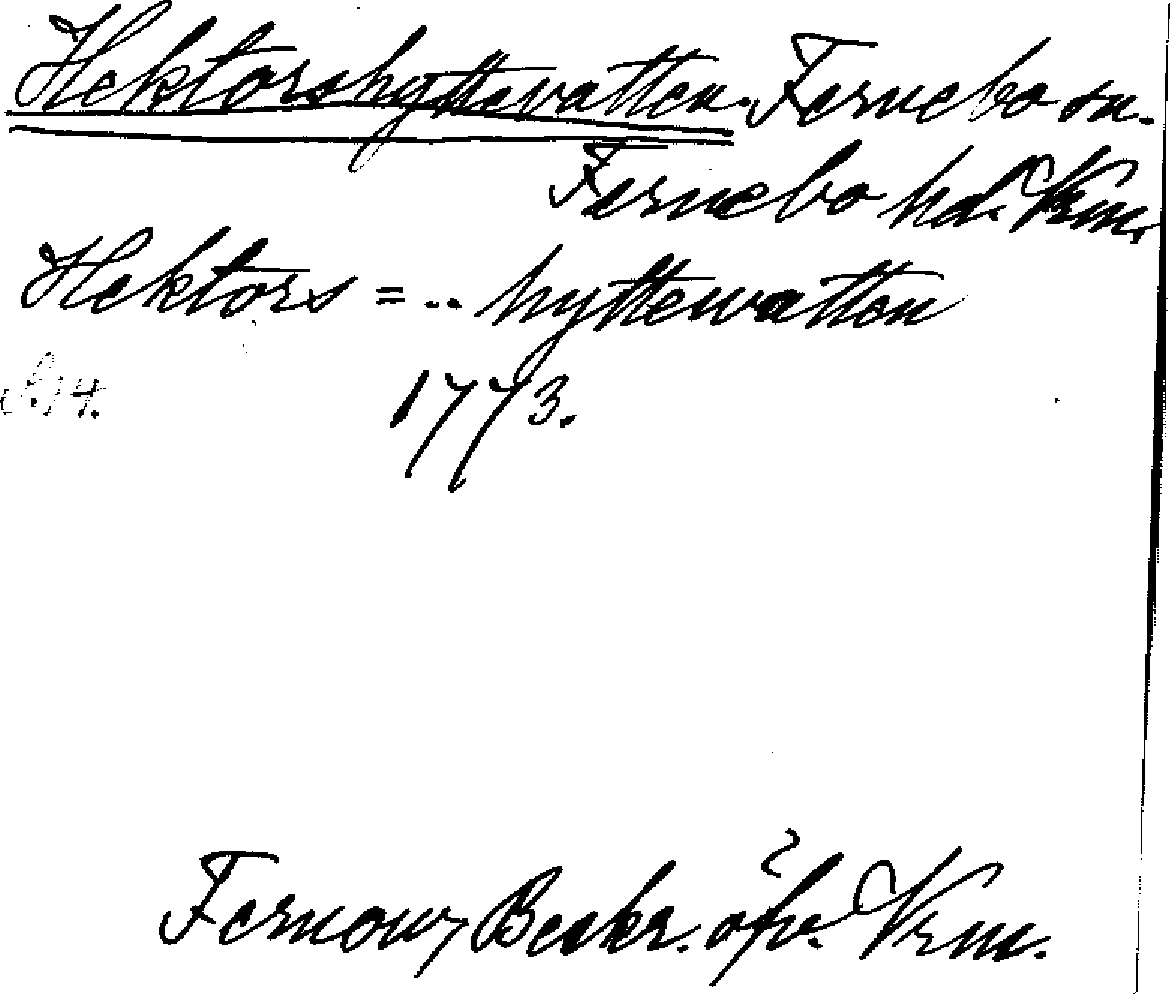 Hektorshyttevatten. Fernebo sn.
Fernebo hd. Vrm.
Hektors = .. hyttewatten
1773.
Fernow, Beskr. öfv. Vrm.